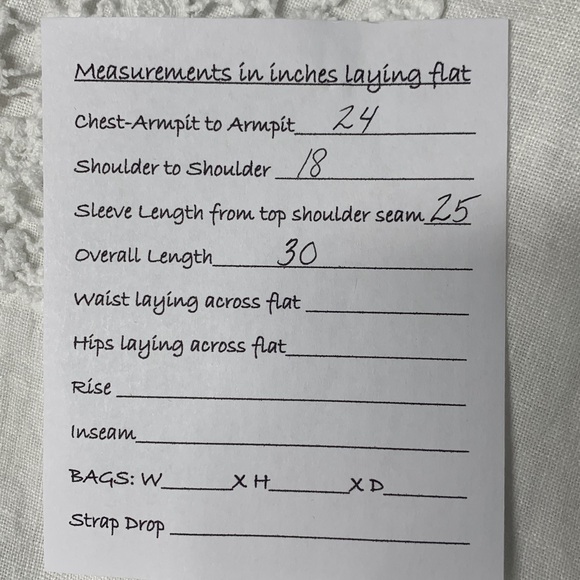 Measurements in inches laying flat
Chest-Armpit to Armpit 24
Shoulder to Shoulder 18
Sleeve Length from top shoulder seam 25
Overall Length 30
Waist laying across flat
Hips laying across flat
Rise
Inseam
BAGS: W______X H______X D______
Strap Drop